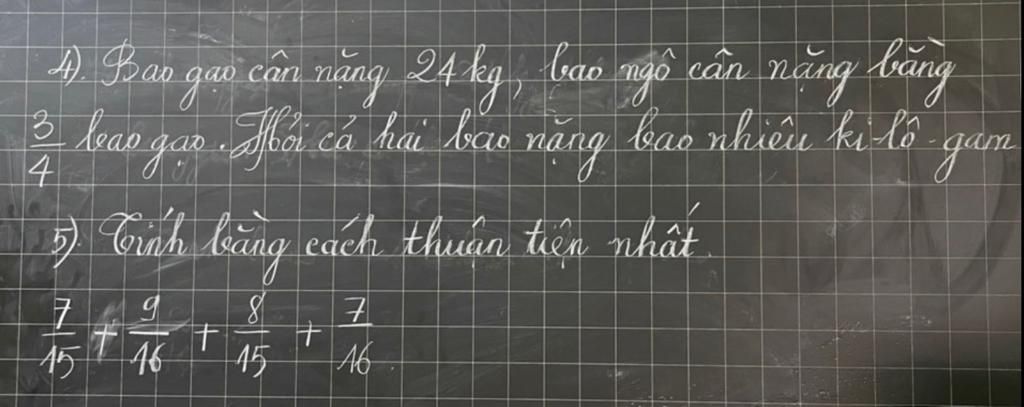 4). Bao gạo cân nặng 24kg, bao ngô cân nặng bằng
3/4 bao gạo. Hỏi cả hai bao nặng bao nhiêu ki-lô-gam
5) Tính bằng cách thuận tiện nhất.
7/15 + 9/16 + 8/15 + 7/16